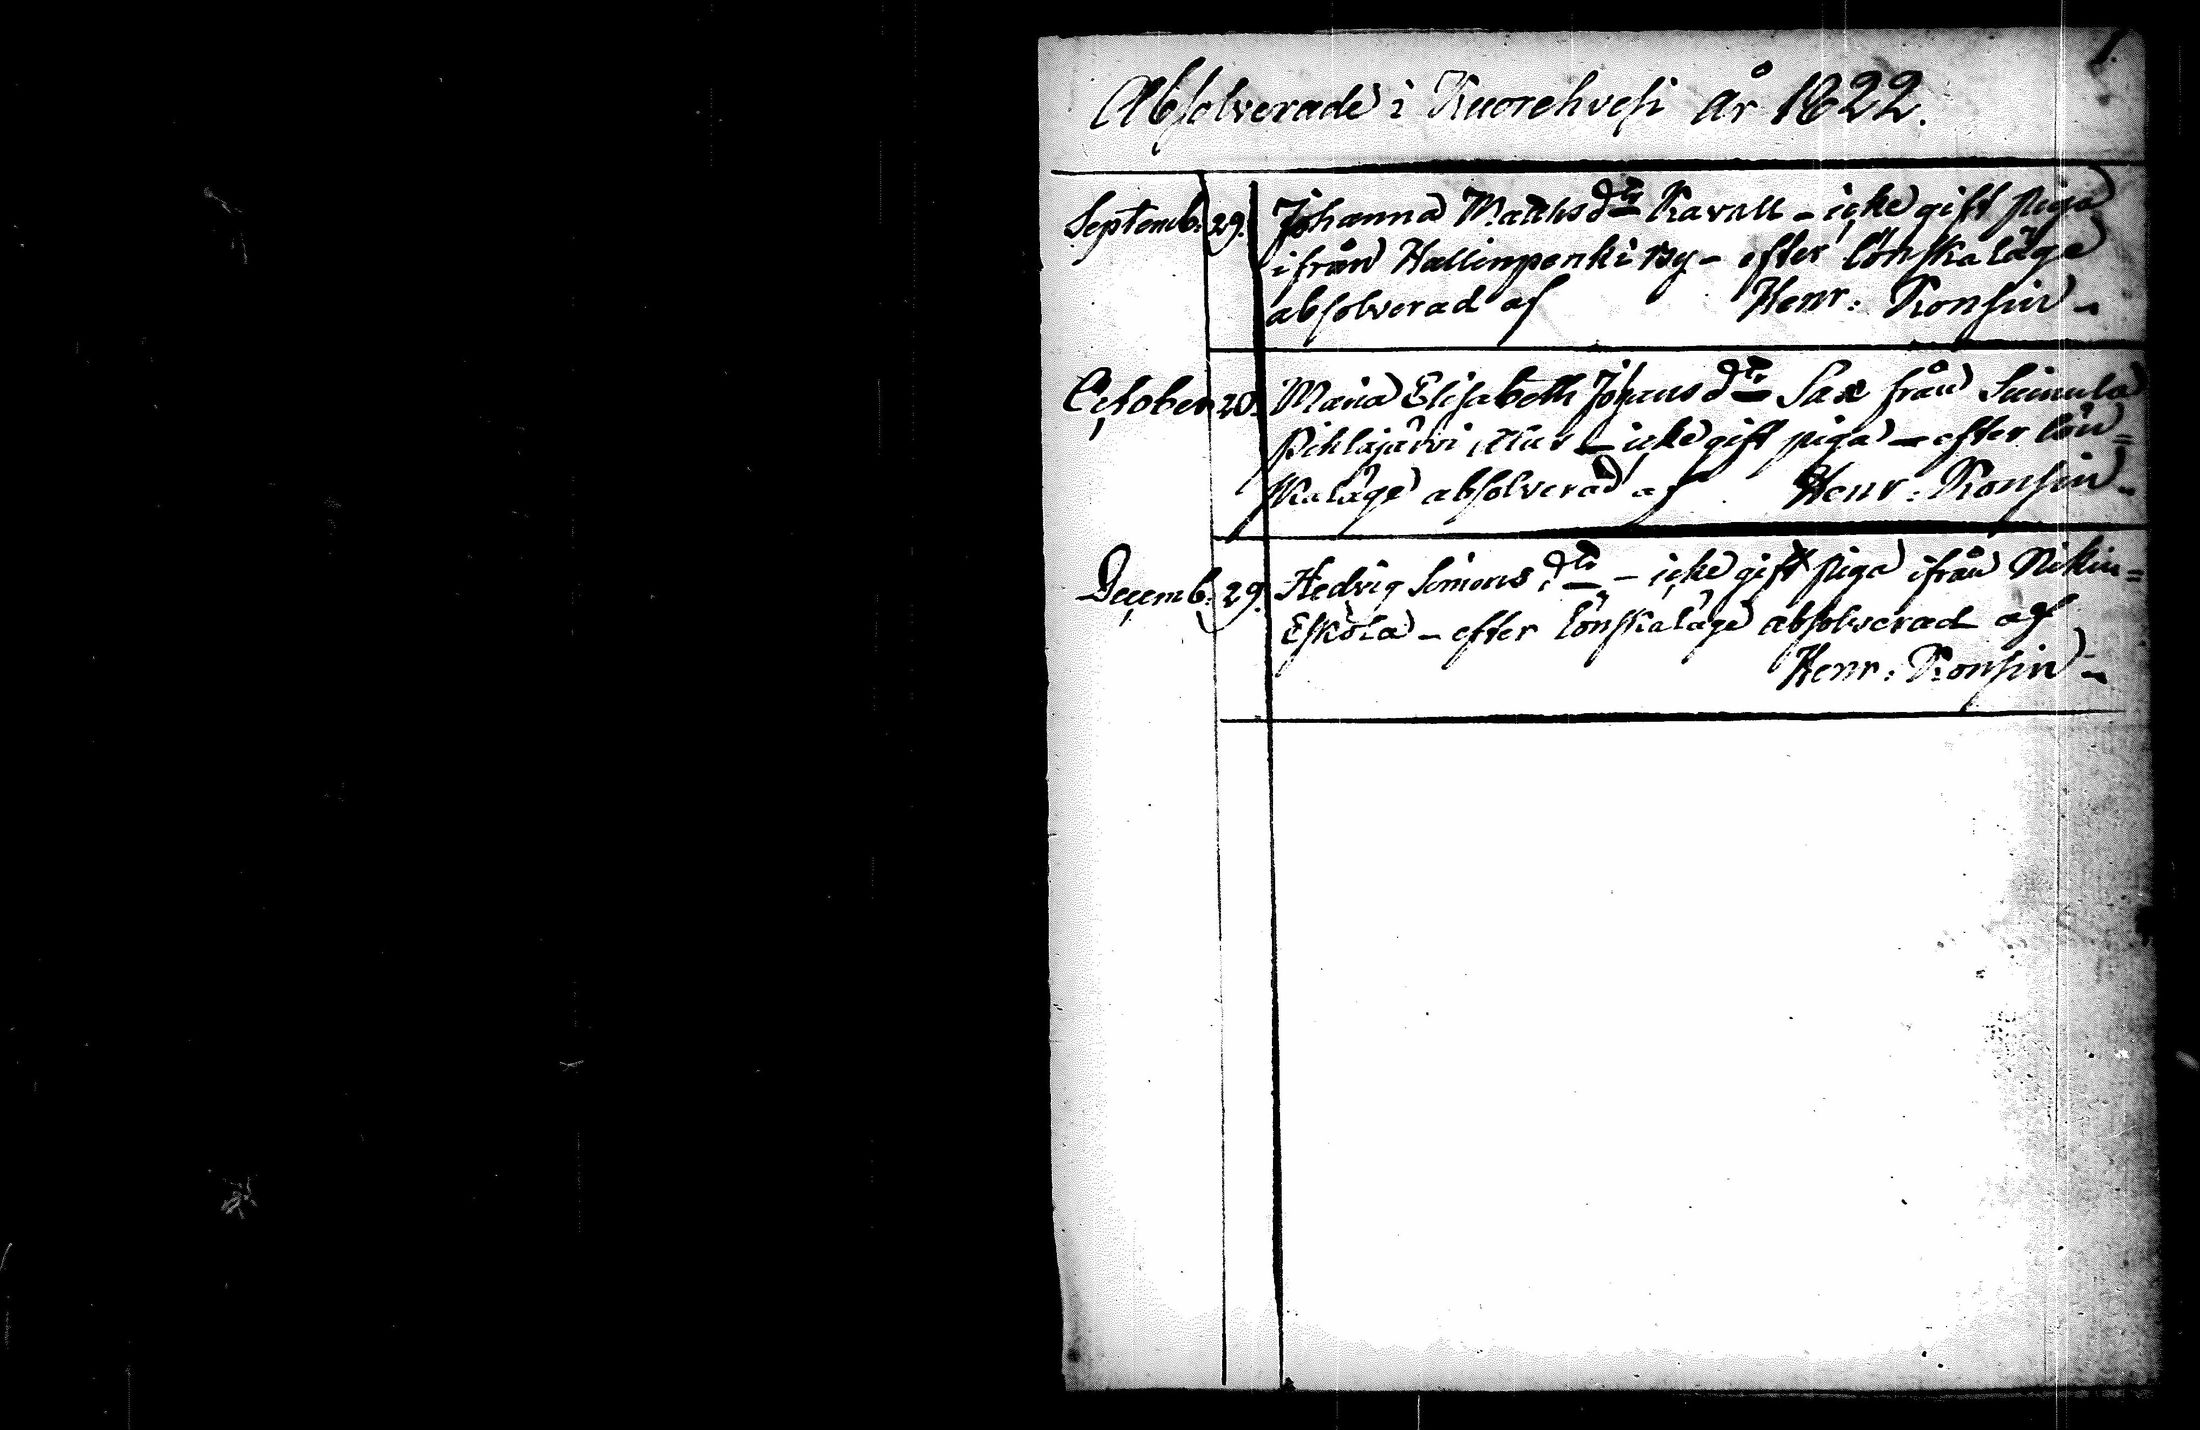 1.
Absolverade i Kuorehvesi år 1822.
Septemb. 29. Johanna Matthsdtr Ravall - icke gift piga
ifrån Hallinpenki by - efter lönskaläge
absolverad af Henr: Konsin -
October 20. Maria Elisabeth Johansdtr Sax från Suinula
Pihlajärvi - icke gift piga - efter lön=
skaläge absolverad af Henr: Konsin -
Decemb. 29. Hedvig Simonsdtr - icke gift piga ifrån Nikin=
Eskola - efter lönskaläge absolverad af
Henr: Konsin -